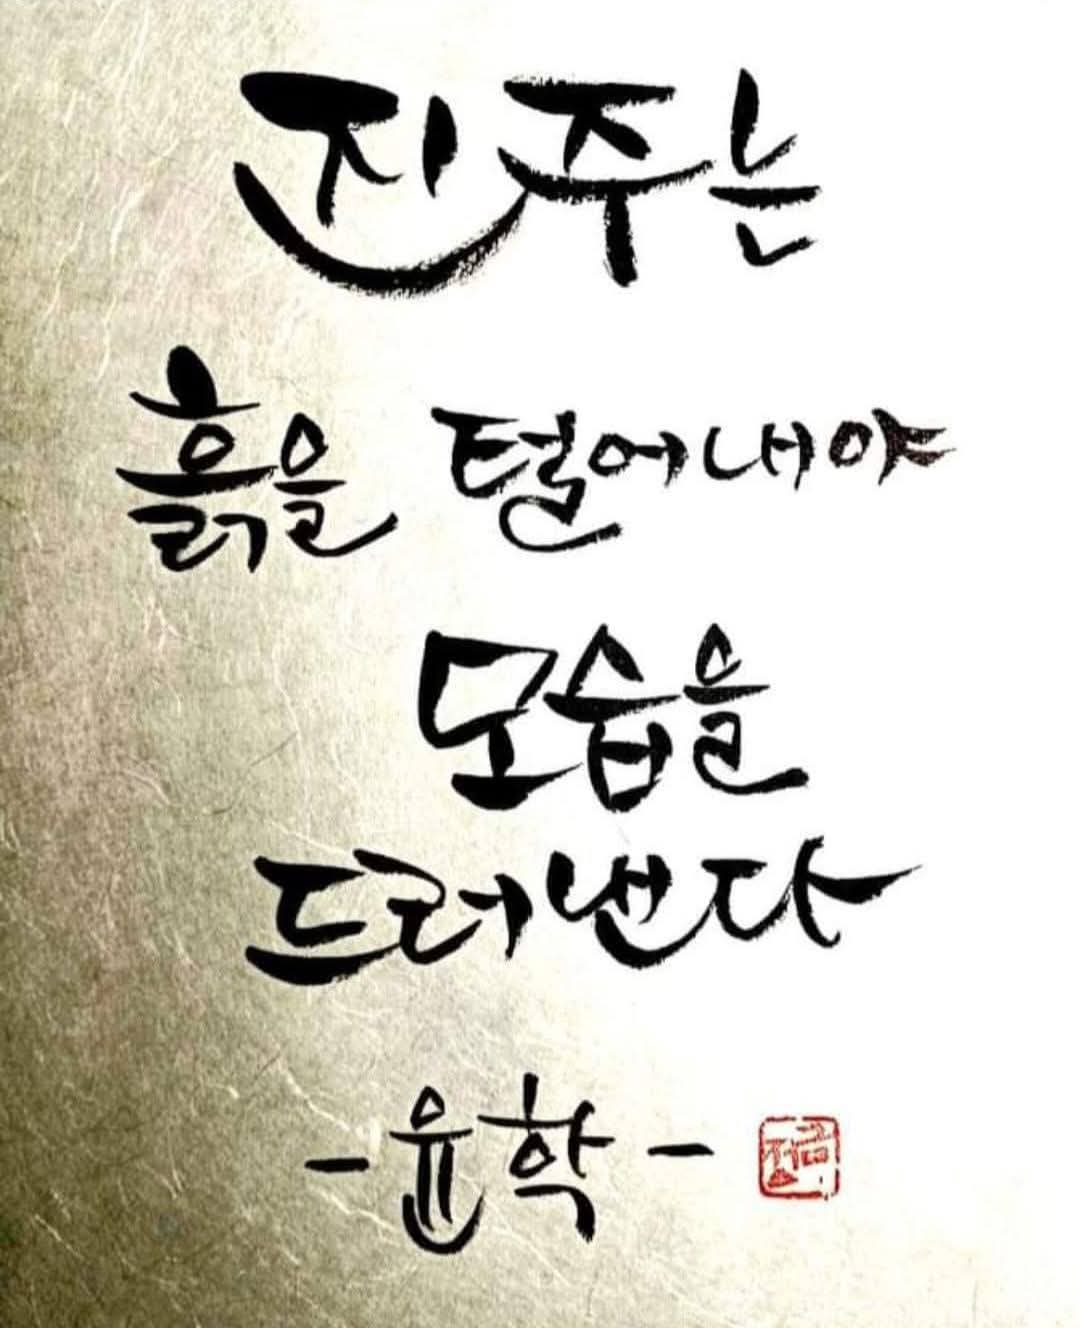 진주는
흙을 털어내야
모습을
드러낸다
-윤학-